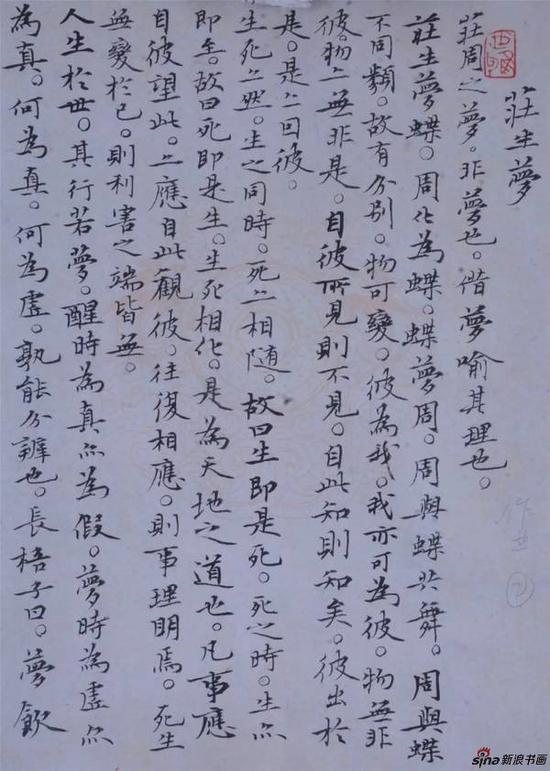 莊生夢
莊周之夢。非夢也。借夢喻其理也。
莊生夢蝶。周化為蝶。蝶夢周。周與蝶共舞。周與蝶
不同類。故有分別。物可變。彼為我。我亦可為彼。物無非
彼。物亦無非是。自彼所見則不見。自此知則知矣。彼出於
是。是亦回彼。
生死亦然。生之同時。死亦相隨。故曰生即是死。死之時。生亦
即至。故曰死即是生。生死相化。是為天地之道也。凡事應
自彼望此。亦應自此觀彼。往復相應。則事理明焉。死生
無變於己。則利害之端皆無。
人生於世。其行若夢。醒時為真亦為假。夢時為虛亦
為真。何為真。何為虛。孰能分辨也。長梧子曰。夢飲
作廿
2
sina新浪书画